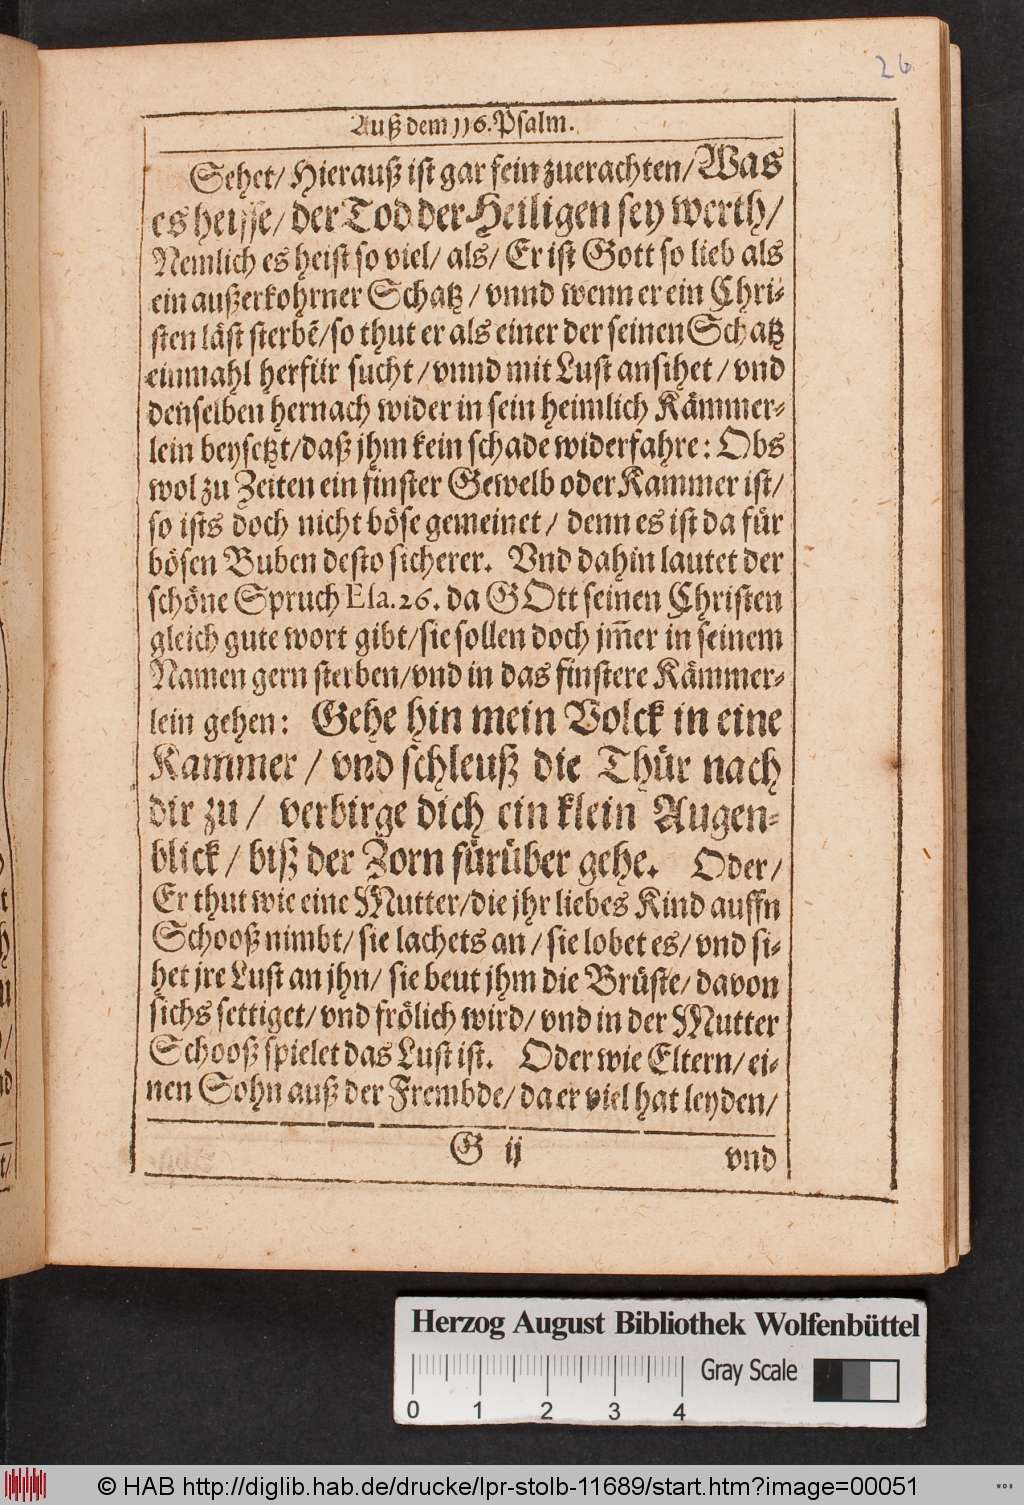 26
Auß dem 116. Psalm.
Sehet/ Hierauß ist gar fein zuerachten/ Was
es heisse/ der Tod der Heiligen sey werth/
Nemlich es heist so viel/ als/ Er ist Gott so lieb als
ein außerkohrner Schatz / vnnd wenn er ein Chri-
sten läst sterbẽ/ so thut er als einer der seinen Schatz
einmahl herfür sucht / vnnd mit Lust ansihet / vnd
denselben hernach wider in sein heimlich Kämmer-
lein beysetzt/ daß jhm kein schade widerfahre: Obs
wol zu Zeiten ein finster Gewelb oder Kammer ist/
so ists doch nicht böse gemeinet / denn es ist da für
bösen Buben desto sicherer. Vnd dahin lautet der
schöne Spruch Esa. 26. da GOtt seinen Christen
gleich gute wort gibt/ sie sollen doch jm̃er in seinem
Namen gern sterben/ vnd in das finstere Kämmer-
lein gehen: Gehe hin mein Volck in eine
Kammer / vnd schleuß die Thür nach
dir zu / verbirge dich ein klein Augen-
blick / biß der Zorn fürüber gehe. Oder/
Er thut wie eine Mutter/ die jhr liebes Kind auffn
Schooß nimbt/ sie lachets an / sie lobet es/ vnd si-
het jre Lust an jhn/ sie beut jhm die Brüste/ davon
sichs settiget/ vnd frölich wird/ vnd in der Mutter
Schooß spielet das Lust ist. Oder wie Eltern/ ei-
nen Sohn auß der Frembde/ da er viel hat leyden/
G ij
vnd
Herzog August Bibliothek Wolfenbüttel
Gray Scale
0 1 2 3 4
© HAB http://diglib.hab.de/drucke/lpr-stolb-11689/start.htm?image=00051